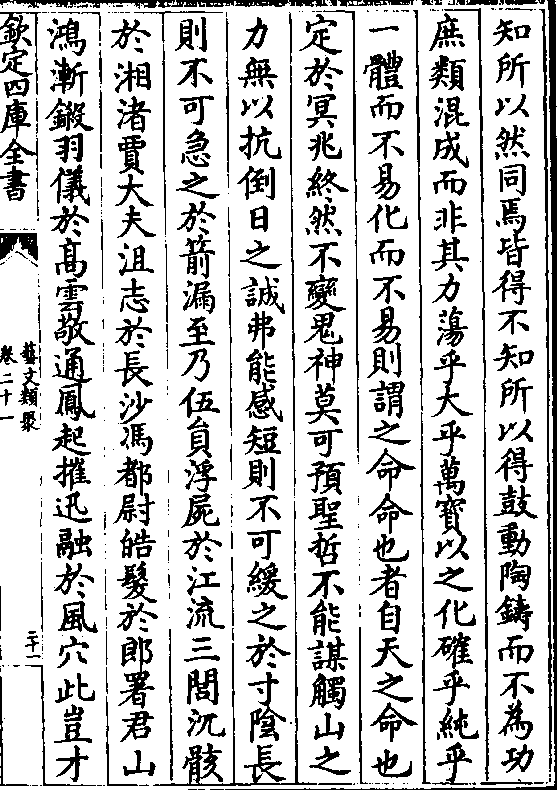 知所以然同焉皆得不知所以得鼓動陶鑄而不為功
庶類混成而非其力蕩乎大乎萬寶以之化確乎純乎
一體而不易化而不易則謂之命命也者自天之命也
定於冥兆終然不變鬼神莫可預聖哲不能謀觸山之
力無以抗倒日之誠弗能感短則不可緩之於寸陰長
則不可急之於箭漏至乃伍員浮屍於江流三閭沉骸
於湘渚賈大夫沮志於長沙馮都尉皓髮於郎署君山
鴻漸鎩羽儀於高雲敬通鳳起摧迅融於風穴此豈才
欽定四庫全書
藝文類聚
卷二十一
二十一